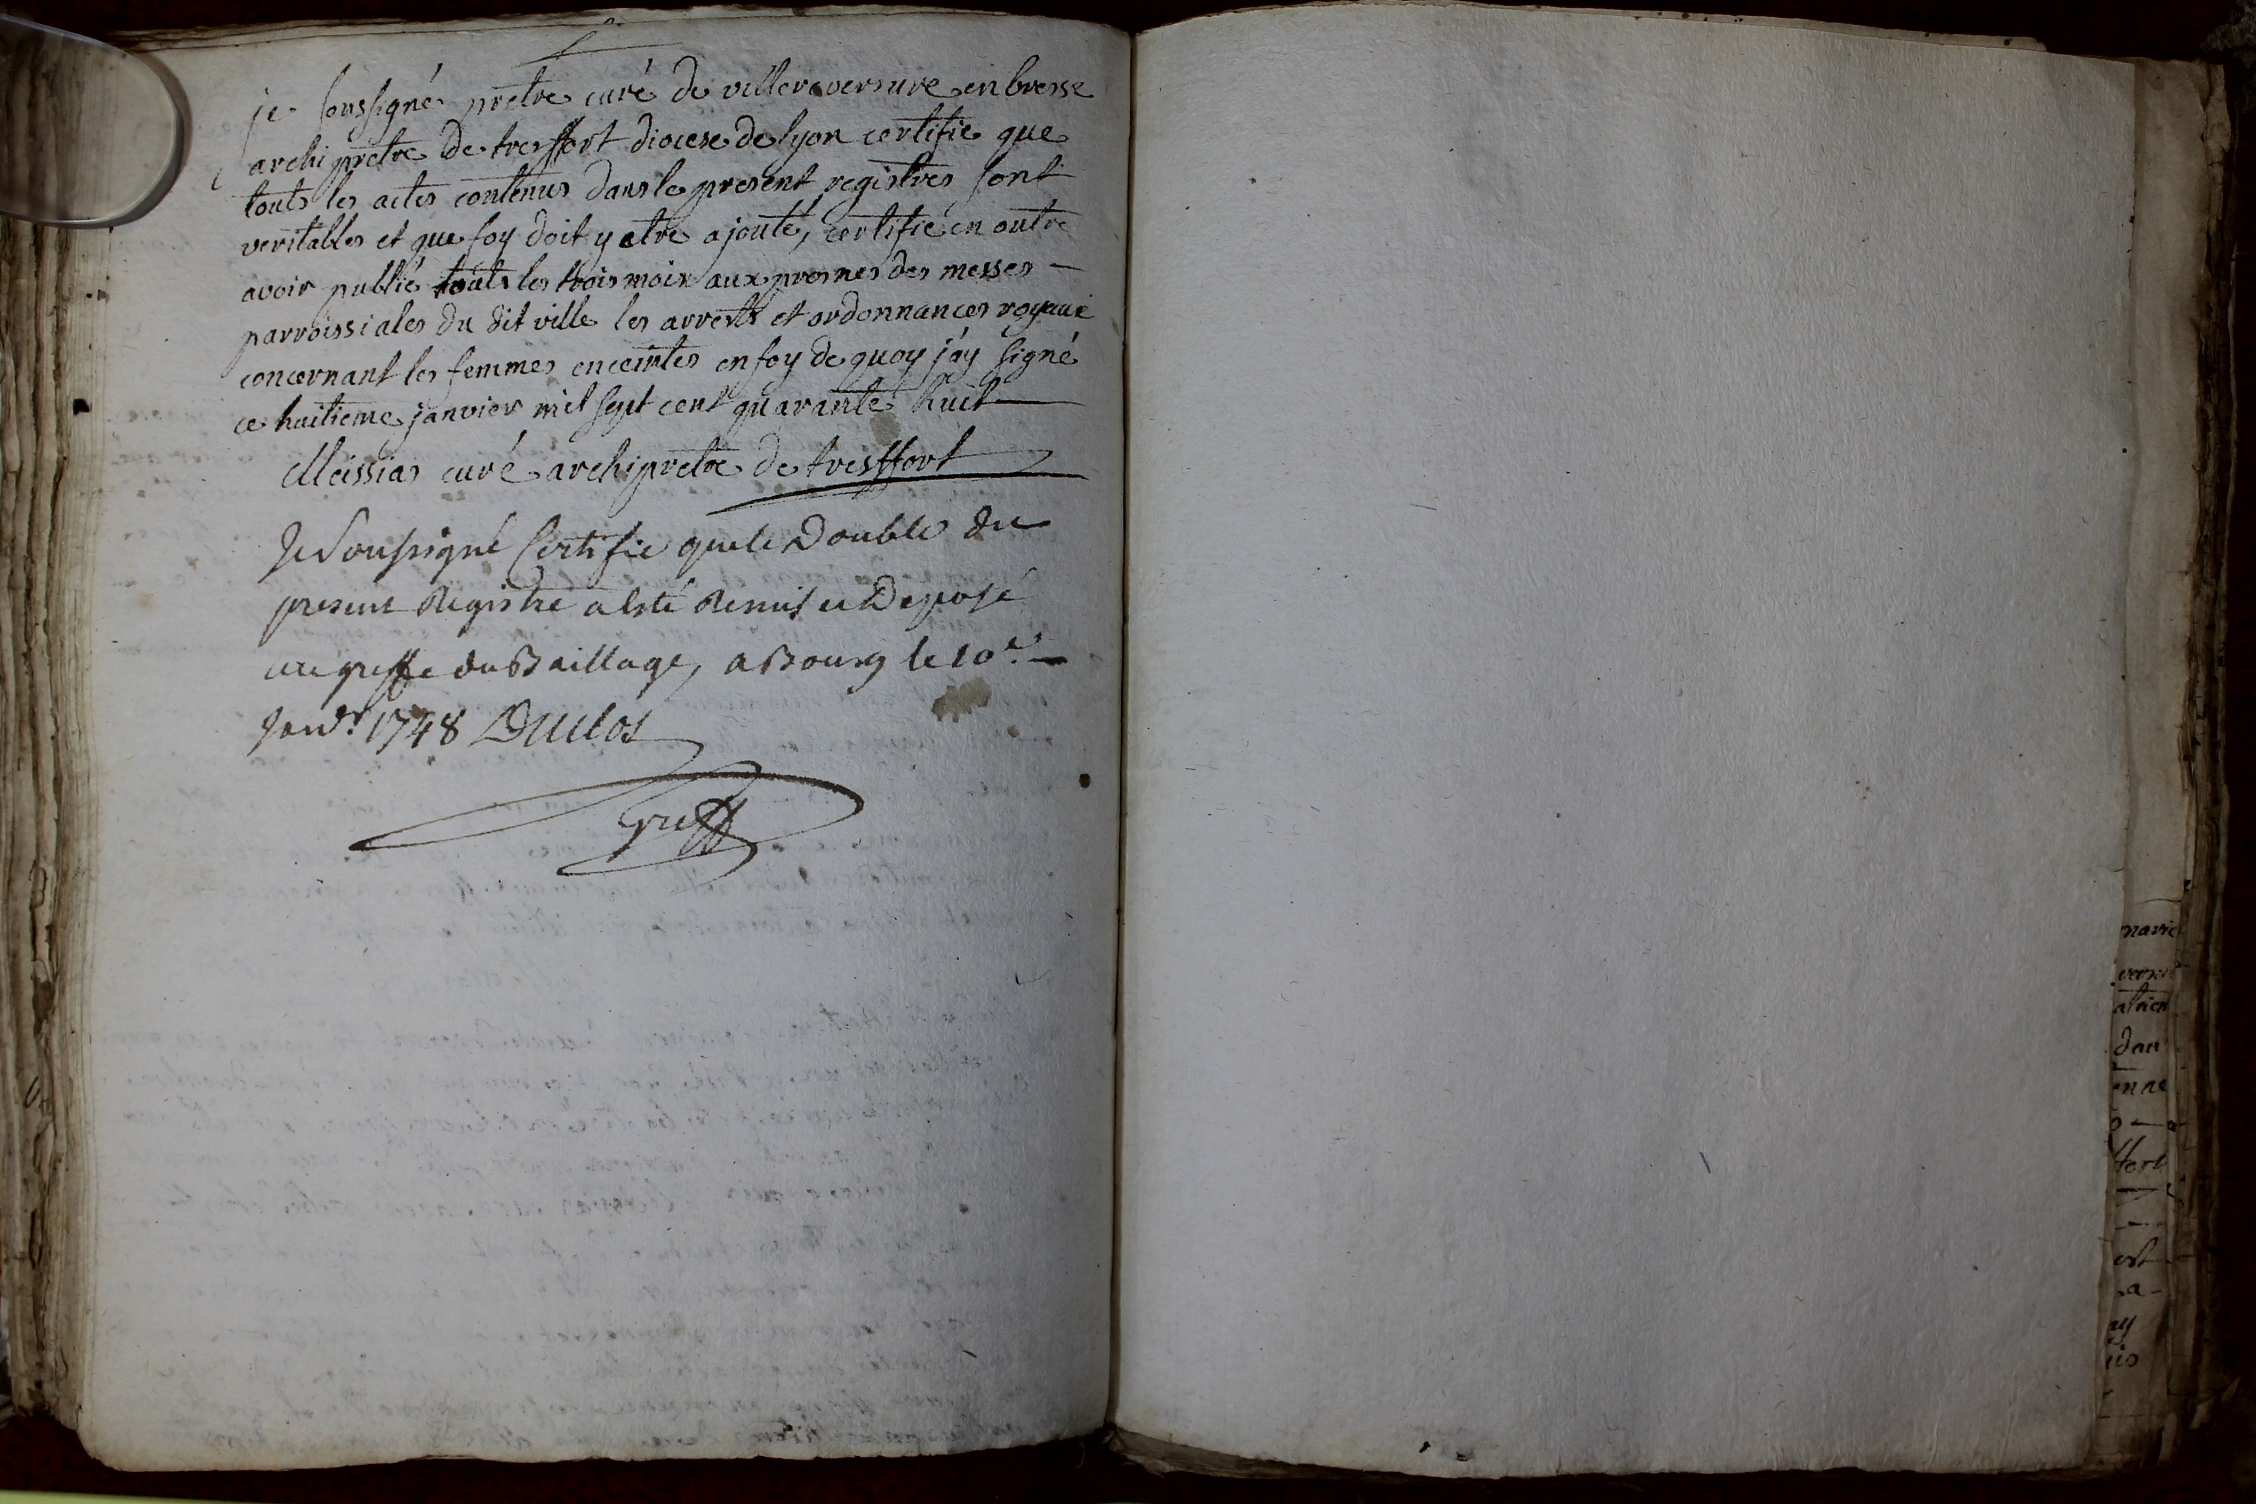 je soussigné pretre curé de villereversure en bresse
archipretre de tresffort diocese de lyon certifie que
touts les actes contenus dans le present registres sont
veritables et que foy doit y etre ajouté, certifie en outre
avoir publié touts les trois moix aux prosnes des messes
parroissiales du dit ville les arrests et ordonnances royaux
concernant les femmes enceintes en foy de quoy j'ay signé
ce huitieme janvier mil sept cent quarante huit
Meissias curé archipretre de tresffort
Je Soussigné Certifie que le Double du
present Registre a esté Remis et Deposé
au greffe du Baillage, a Bourg le 10e.
Janvr. 1748 Duclos
greff
mavie
dan
enne
est
a
ay